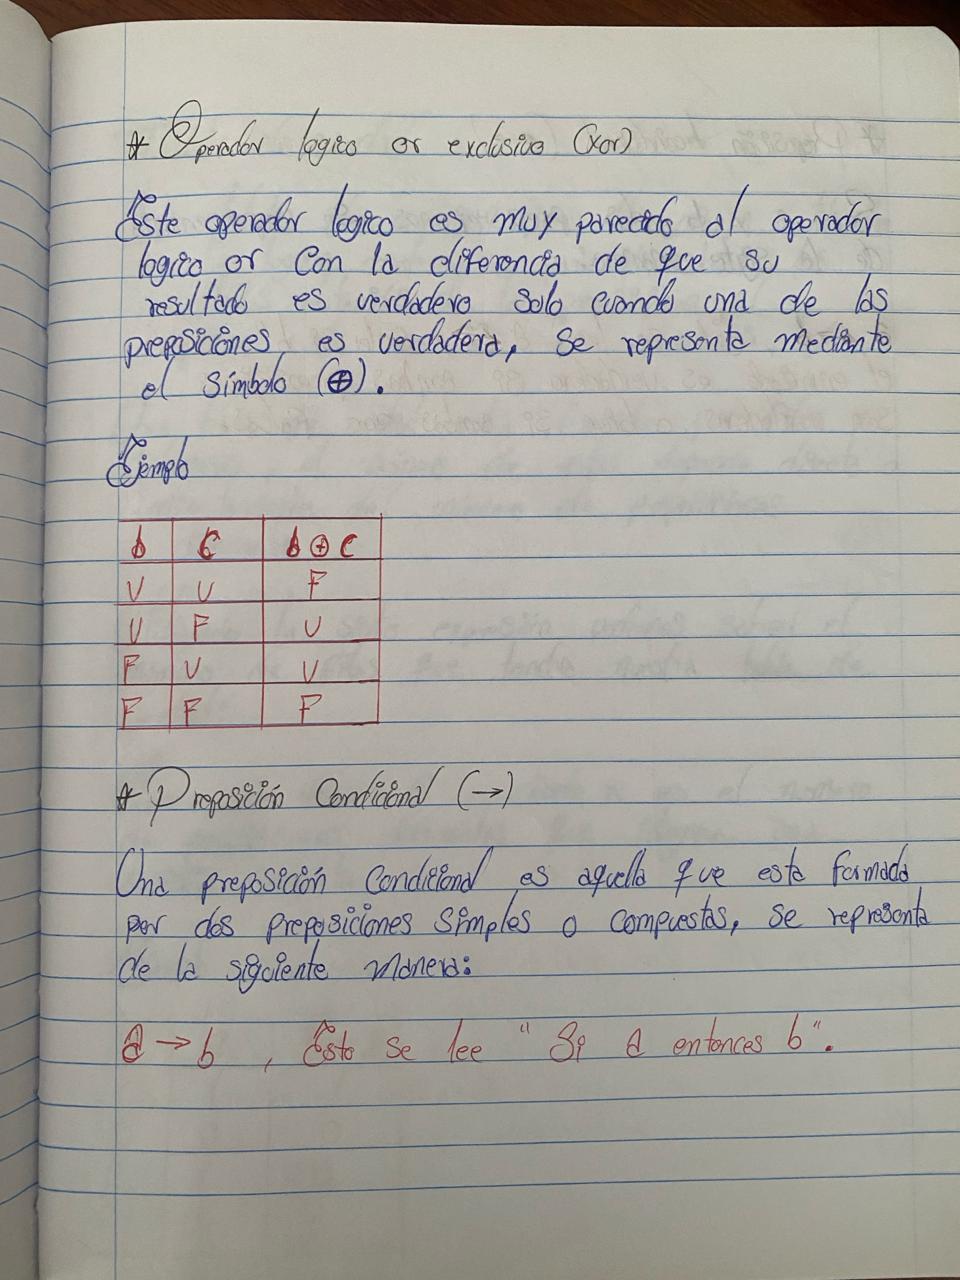 * Operador logico or exclusivo (xor)
Este operador logico es muy parecido al operador
logico or con la diferencia de que su
resultado es verdadero solo cuando una de las
preposiciones es verdadera, se representa mediante
el símbolo (⊕).
Ejemplo
b c b ⊕ c
V V F
V F V
F V V
F F F
* Proposición Condicional (→)
Una preposición condicional es aquella que esta formada
por dos preposiciones simples o compuestas, se representa
de la siguiente manera:
a → b , Esto se lee "Si a entonces b".